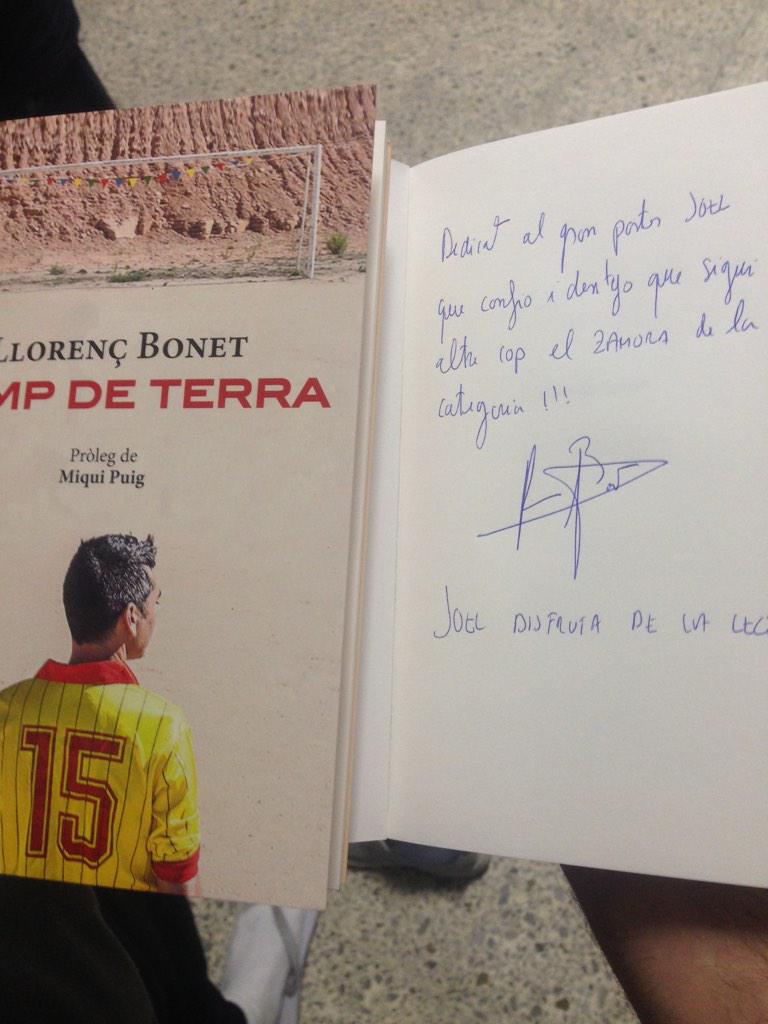 LLORENÇ BONET
MP DE TERRA
Pròleg de
Miqui Puig
15
Dedicat al gran porter JOEL
que confio i desitjo que sigui
altre cop el ZAMORA de la
categoria !!!
JOEL DISFRUTA DE LA LEC